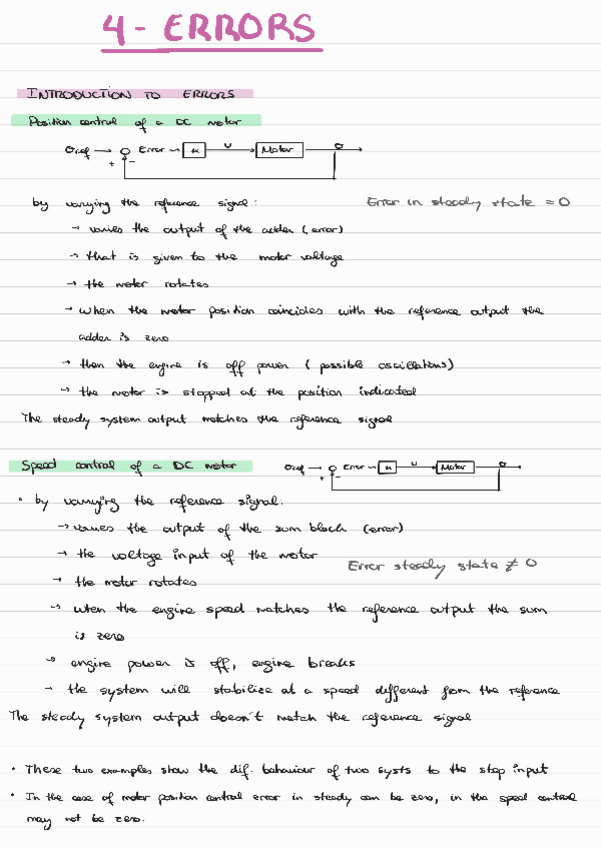 4 - ERRORS
INTRODUCTION TO ERRORS
Position control of a DC motor
θref → Error → K U Motor θ
+ -
by varying the reference signal: Error in steady state = 0
→ varies the output of the adder (error)
→ that is given to the motor voltage
→ the motor rotates
→ when the motor position coincides with the reference output the
adder is zero
→ then the engine is off power (possible oscillations)
→ the motor is stopped at the position indicated
The steady system output matches the reference signal
Speed control of a DC motor θref → Error → K U Motor θ
+ -
• by varying the reference signal:
→ varies the output of the sum block (error)
→ the voltage input of the motor
Error steady state ≠ 0
→ the motor rotates
→ when the engine speed matches the reference output the sum
is zero
→ engine power is off, engine breaks
→ the system will stabilize at a speed different form the reference
The steady system output doesn't match the reference signal
• These two examples show the dif. behaviour of two systs to the step input
• In the case of motor position control error in steady can be zero, in the speed control
may not be zero.